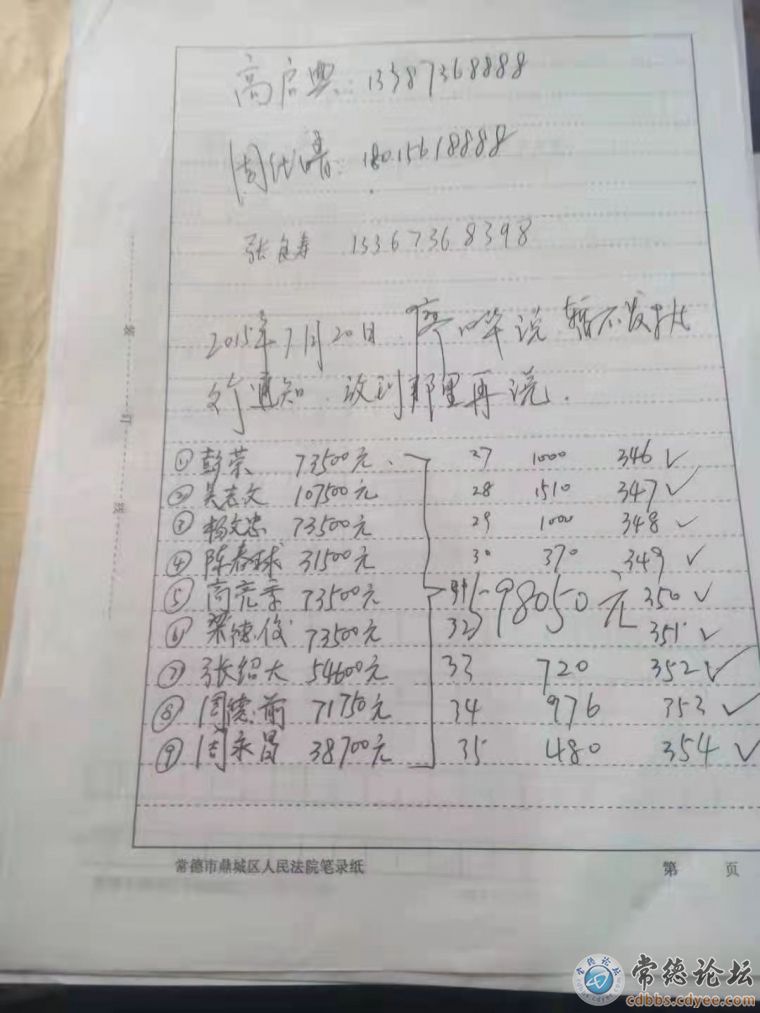 高启典: 13387368888
周: 18015618888
张良寿 13367368398
2015年7月20日 廖华说暂不发执
行通知. 改到那里再说.
① 彭荣 73500元. 27 1000 346 ✓
② 吴志文 107500元 28 1510 347 ✓
③ 杨文忠 73500元 29 1000 348 ✓
④ 陈春球 31500元 30 370 349 ✓
⑤ 高亮 73500元 598050元 350 ✓
⑥ 梁德俊 73500元 32 351 ✓
⑦ 张绍大 54600元 33 720 352 ✓
⑧ 周德前 71750元 34 976 353 ✓
⑨ 周永昌 38700元 35 480 354 ✓
装
订
线
常德市鼎城区人民法院笔录纸 第 页
常德论坛
cdbbs.cdyee.com